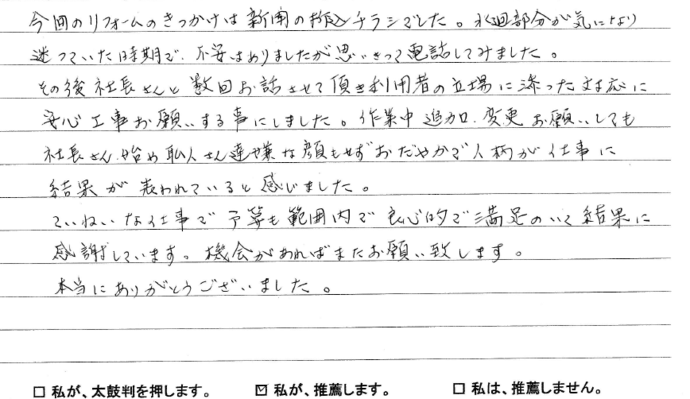 今回のリフォームのきっかけは新聞の折込チラシでした。水廻部分が気になり
迷っていた時期で、不安はありましたが思いきって電話してみました。
その後社長さんと数回お話させて頂き利用者の立場に添った対応に
安心工事お願いする事にしました。作業中追加、変更お願いしても
社長さん始め職人さん達や嫌な顔もせずおだやかで人柄が仕事に
結果が表われていると感じました。
ていねいな仕事で予算も範囲内で良心的で満足のいく結果に
感謝しています。機会があればまたお願い致します。
本当にありがとうございました。
☐ 私が、太鼓判を押します。 ☑ 私が、推薦します。 ☐ 私は、推薦しません。